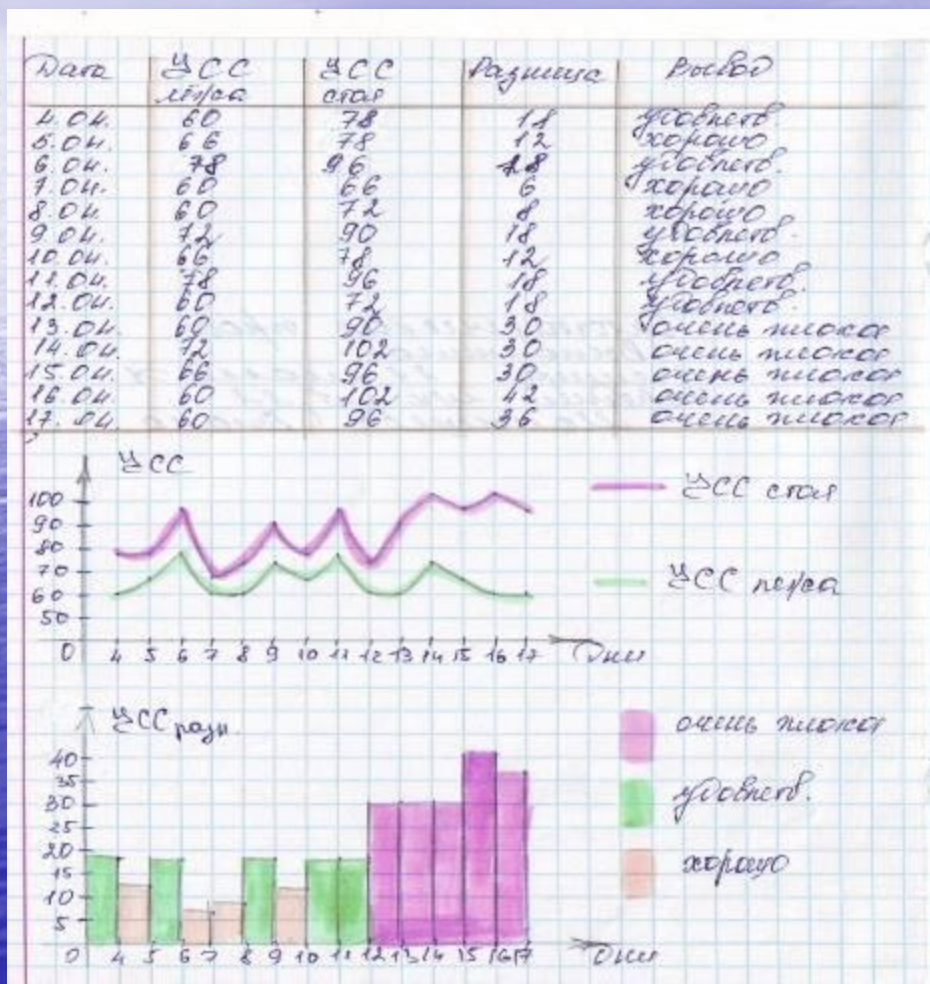 Дата ЧСС лёжа ЧСС стоя Разница Вывод
4.04. 60 78 18 удовлетв.
5.04. 66 78 12 хорошо
6.04. 78 96 18 удовлетв.
7.04. 60 66 6 хорошо
8.04. 60 72 8 хорошо
9.04. 72 90 18 удовлетв.
10.04. 66 78 12 хорошо
11.04. 78 96 18 удовлетв.
12.04. 60 72 18 удовлетв.
13.04. 60 90 30 очень плохо
14.04. 72 102 30 очень плохо
15.04. 66 96 30 очень плохо
16.04. 60 102 42 очень плохо
17.04. 60 96 36 очень плохо
ЧСС
100
90
80
70
60
50
0 4 5 6 7 8 9 10 11 12 13 14 15 16 17 Дни
ЧСС стоя
ЧСС лёжа
ЧСС разн.
40
35
30
25
20
15
10
5
0 4 5 6 7 8 9 10 11 12 13 14 15 16 17 Дни
очень плохо
удовлетв.
хорошо